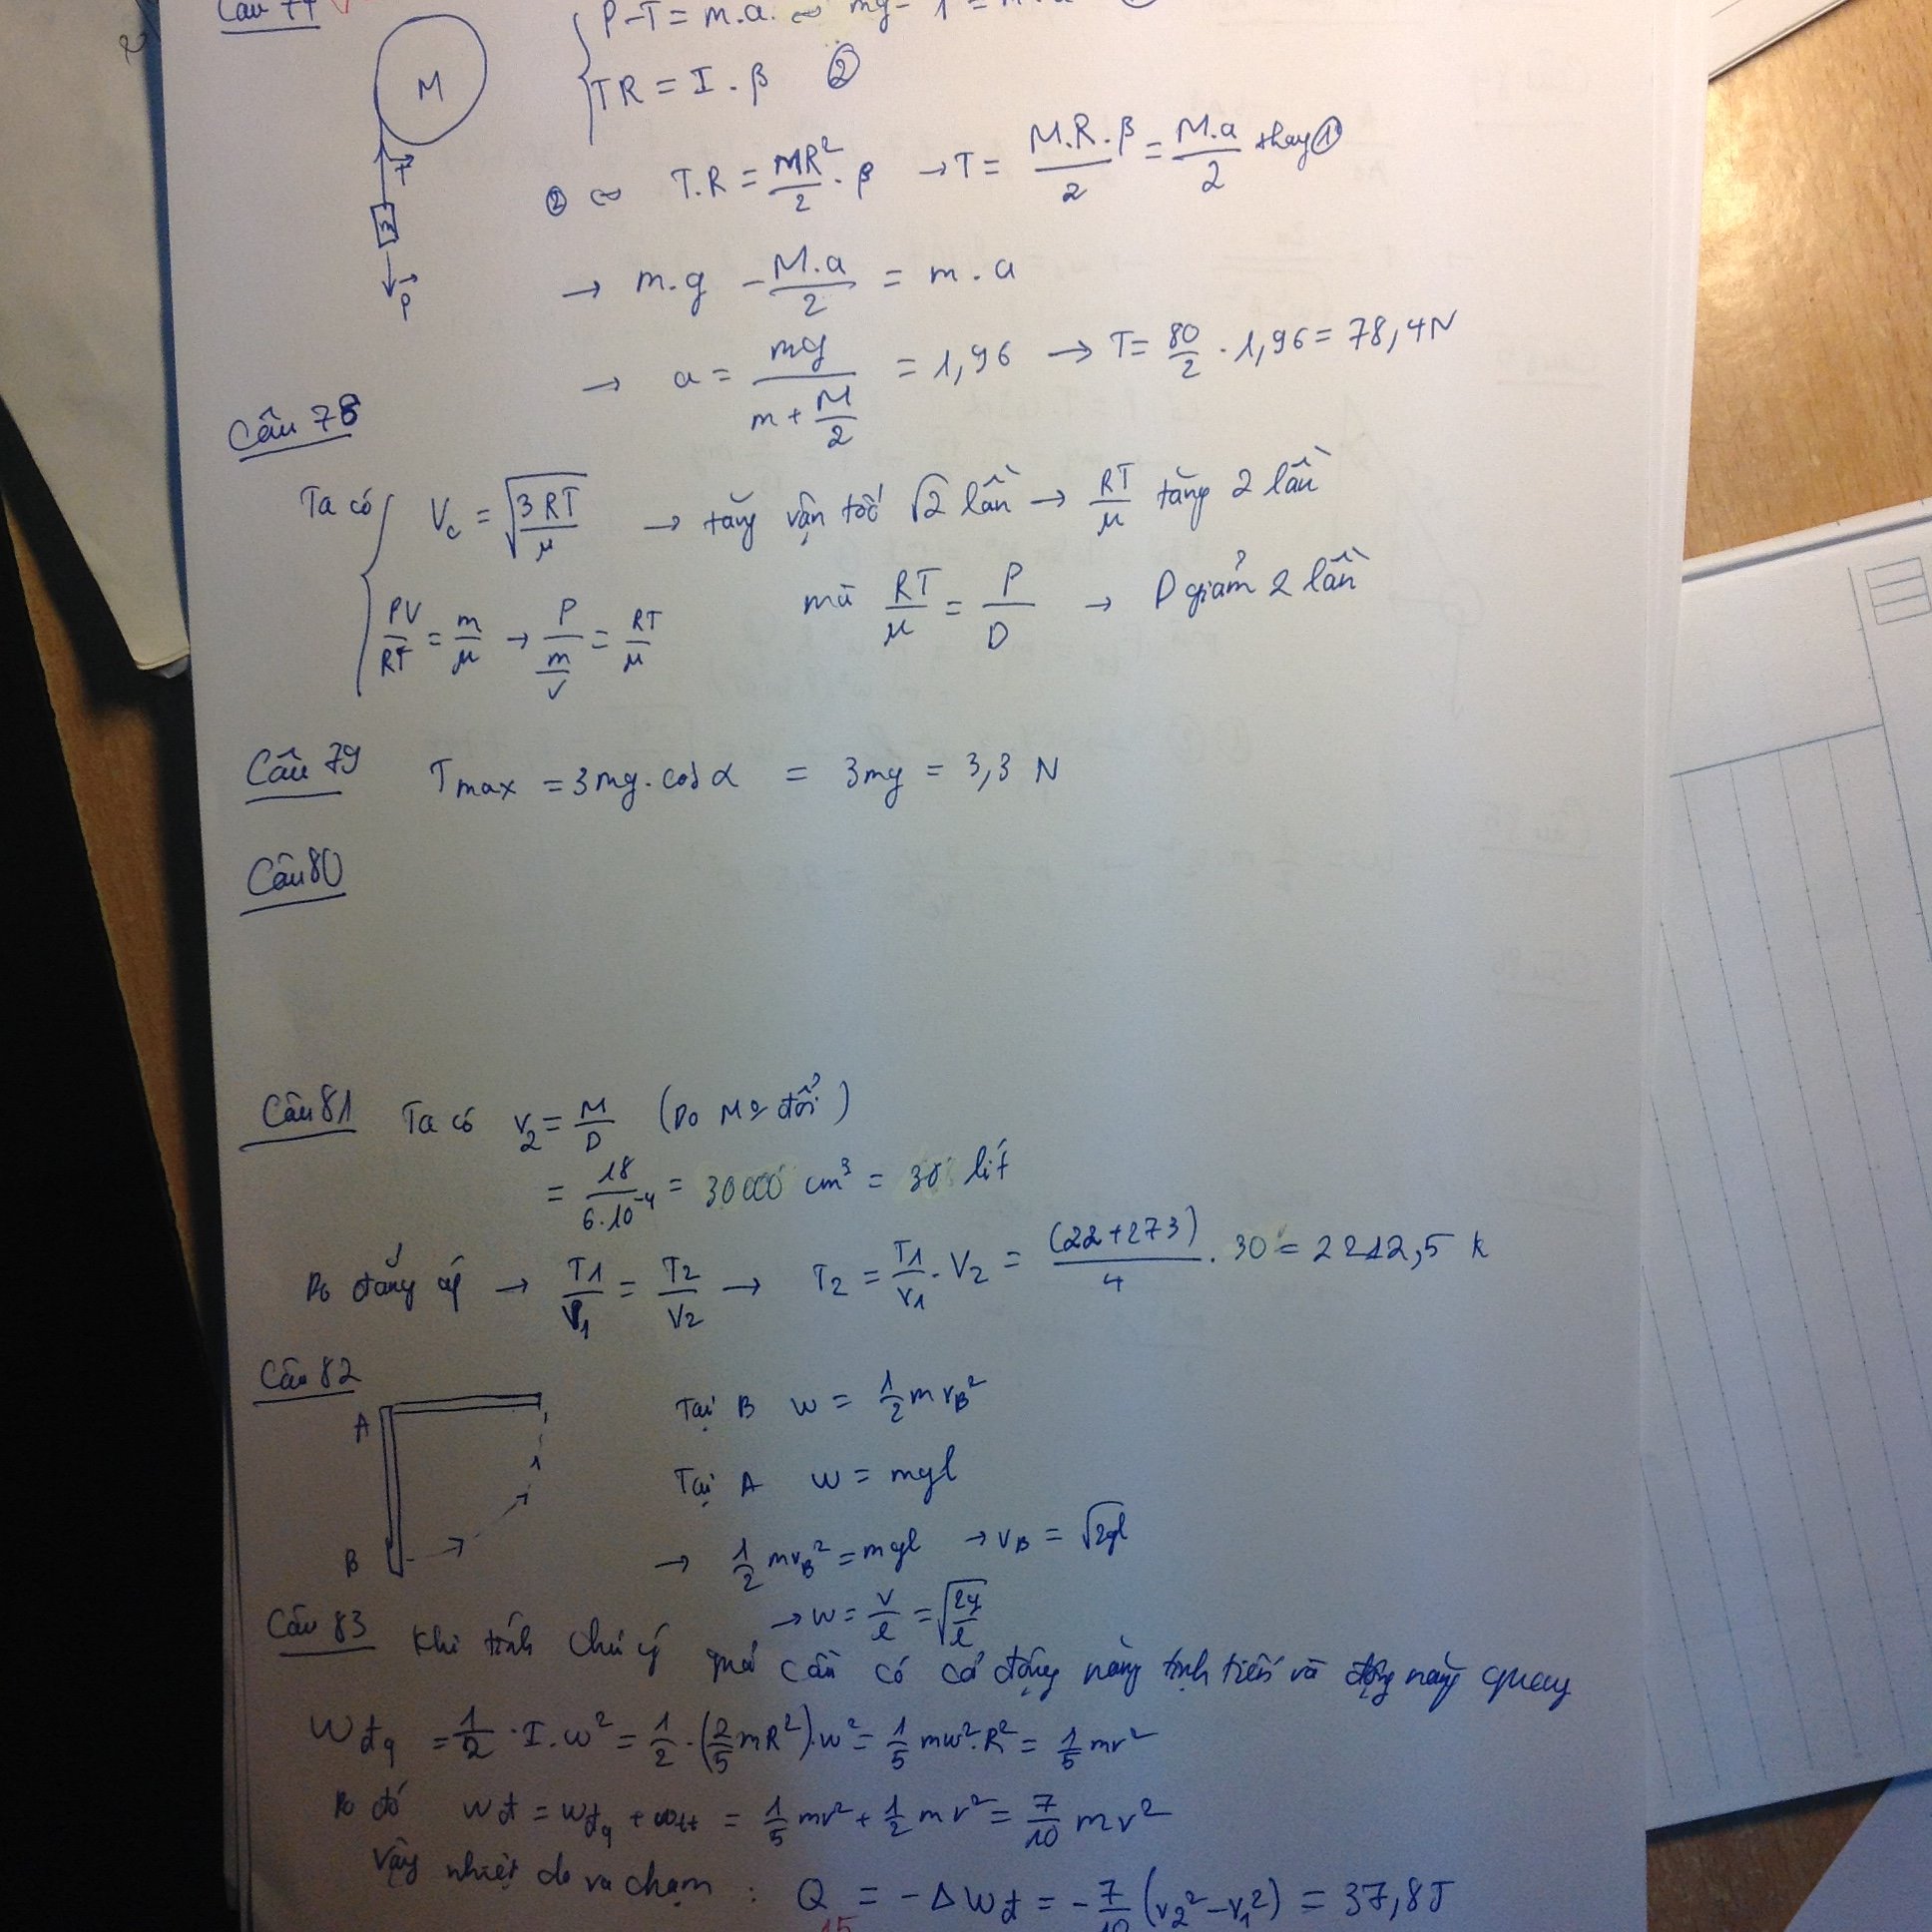 Câu 77
P-T = m.a. ⇔ mg-T = m.a
TR = I.β ②
M
② ⇔ T.R = MR²/2 . β → T = M.R.β/2 = M.a/2 thay ①
T
m
P
→ m.g - M.a/2 = m.a
→ a = mg/(m + M/2) = 1,96 → T = 80/2 . 1,96 = 78,4N
Câu 78
Ta có Vc = √(3RT/μ) → tăng vận tốc √2 lần → RT/μ tăng 2 lần
PV/RT = m/μ → P/(m/V) = RT/μ mà RT/μ = P/D → D giảm 2 lần
Câu 79 Tmax = 3mg.cosα = 3mg = 3,3 N
Câu 80
Câu 81 Ta có V2 = M/D (Do M o đổi)
= 18/6.10⁻⁴ = 30000 cm³ = 30 lít
Do đẳng áp → T1/V1 = T2/V2 → T2 = T1/V1 . V2 = (22+273)/4 . 30 = 2212,5 K
Câu 82
A
B
Tại B W = 1/2 mvB²
Tại A W = mgl
→ 1/2 mvB² = mgl → vB = √2gl
→ w = v/l = √(2g/l)
Câu 83 Khi tính chú ý quả cầu có cả động năng tịnh tiến và động năng quay
Wđq = 1/2 . I.w² = 1/2 . (2/5 mR²).w² = 1/5 mw².R² = 1/5 mv²
Do đó Wđ = Wđq + Wtt = 1/5 mv² + 1/2 mv² = 7/10 mv²
Vậy nhiệt do va chạm : Q = -ΔWđ = -7/10 (v2² - v1²) = 37,8J
15